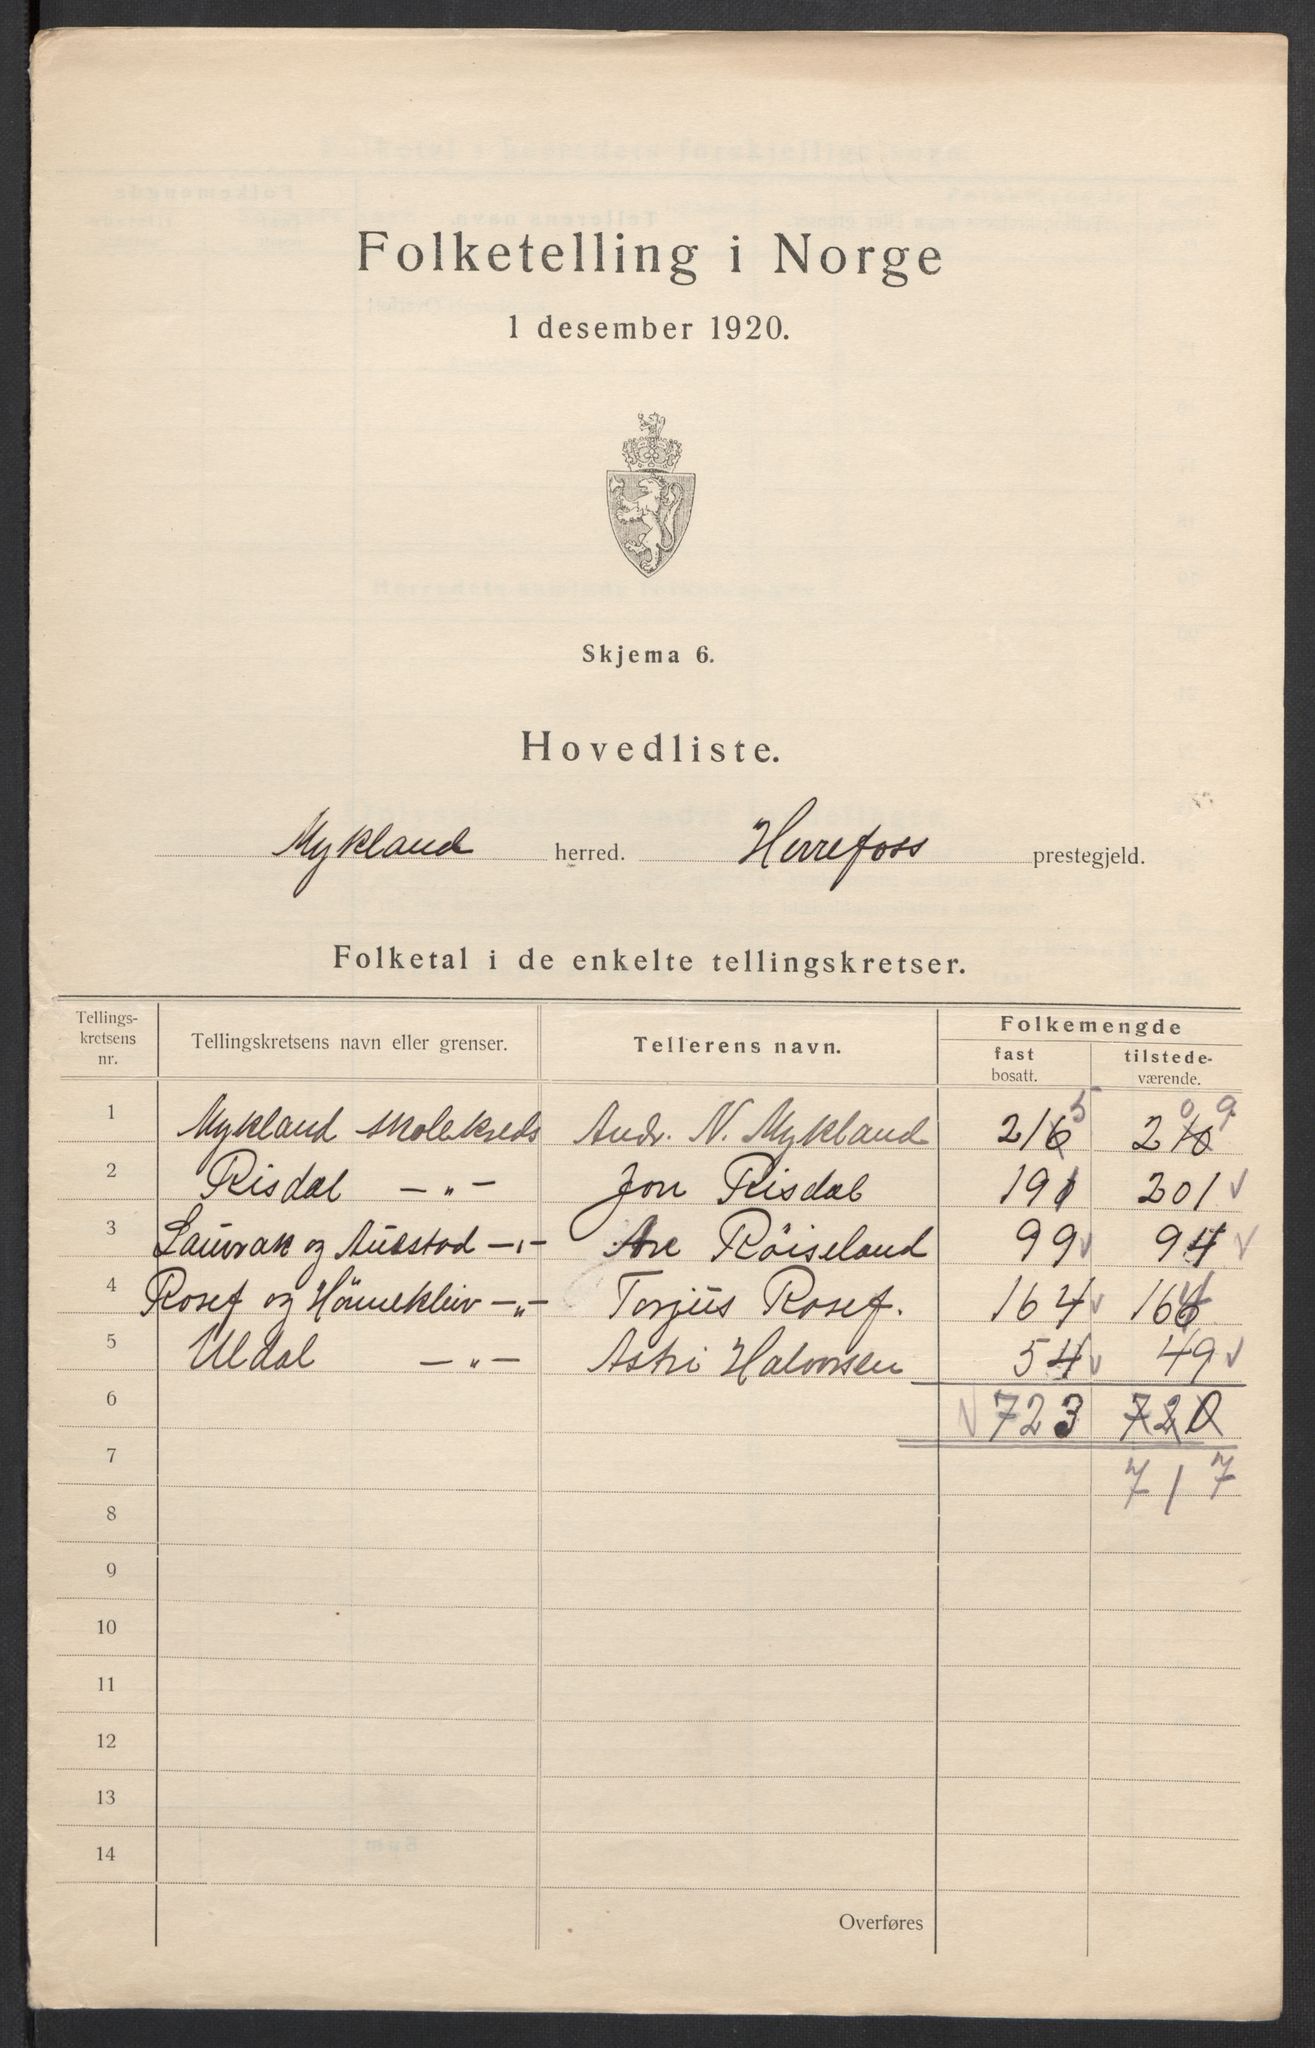 Folketelling i Norge
1 desember 1920.
Skjema 6.
Hovedliste.
Mykland herred. Herrefoss prestegjeld.
Folketal i de enkelte tellingskretser.
Tellings-kretsens nr. Tellingskretsens navn eller grenser. Tellerens navn. Folkemengde
fast bosatt. tilstede-værende.
1 Mykland skolekreds Andr. N. Mykland 2165 21009
2 Risdal —„— Jon Risdal 191 201 √
3 Lauvrak og Austad —„— Are Röiseland 99 √ 94 √
4 Rosef og Hömekliv —„— Torjus Rosef. 164 √ 164
5 Uldal —„— Astri Halvorsen 54 √ 49 √
6 √ 723 720
7 717
8
9
10
11
12
13
14
Overføres